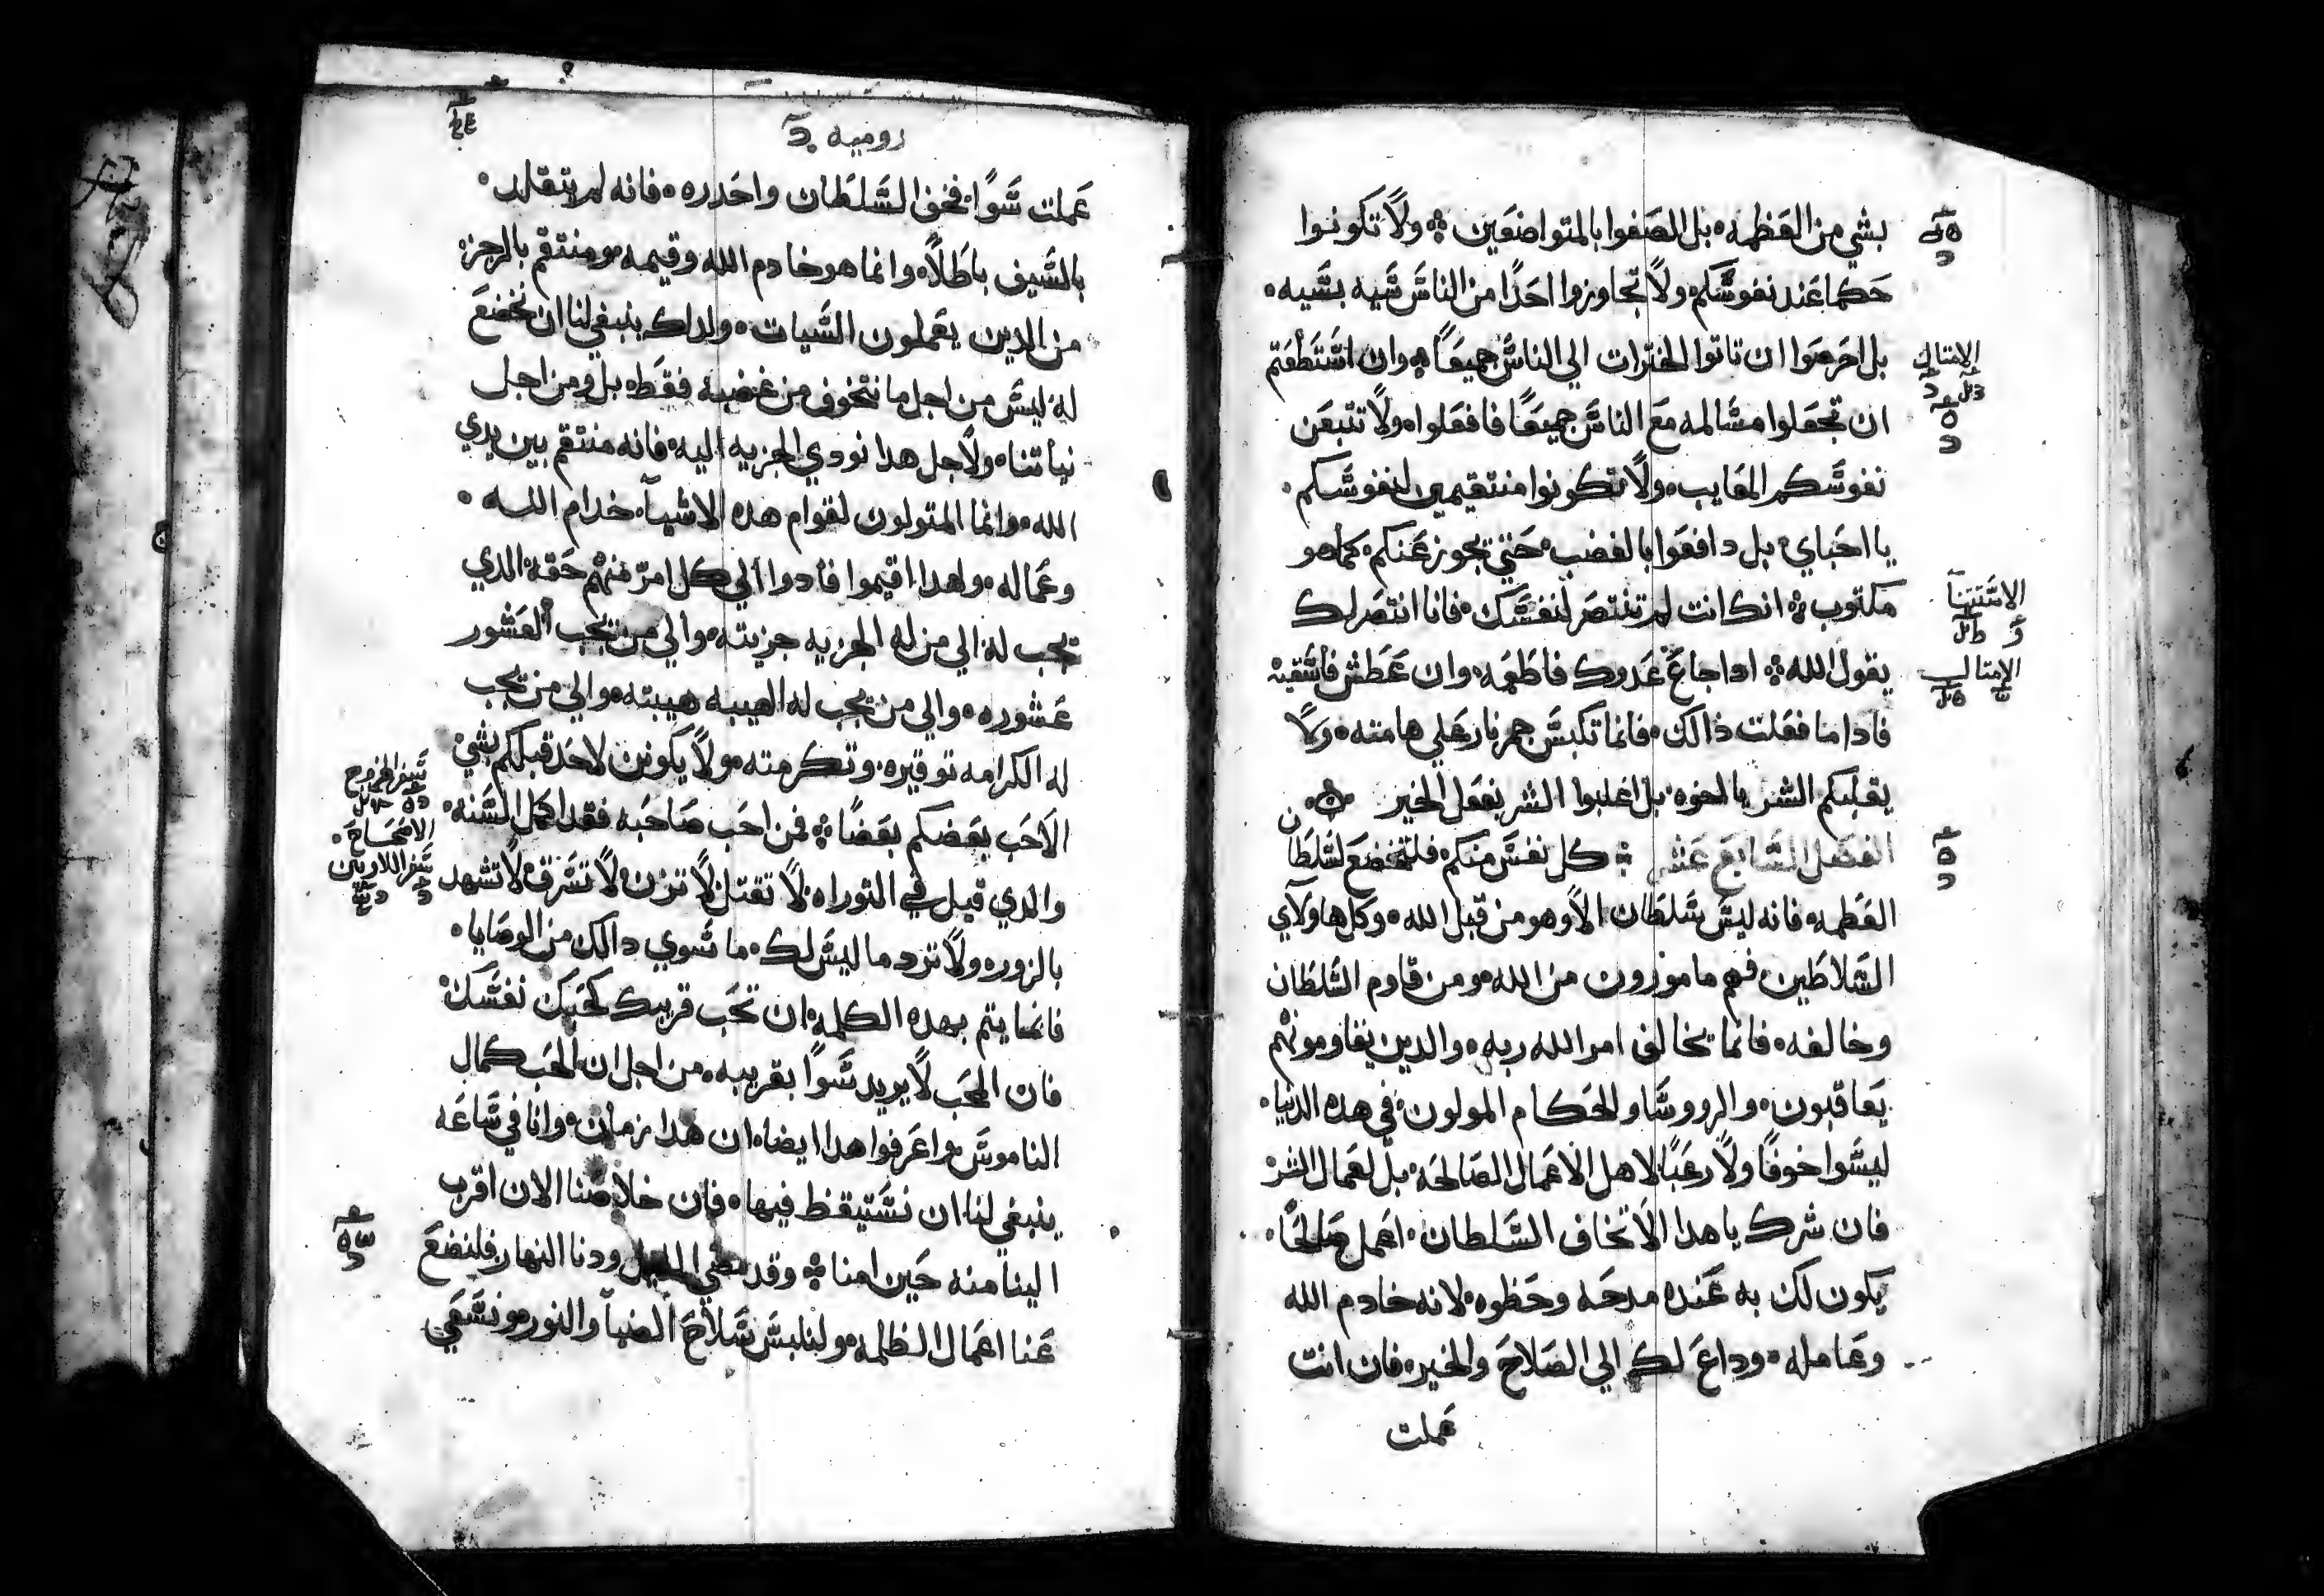 بشي من العظمه، بل الصفوا بالمتواضعين ܀ ولا تكونوا
حكما عند نفوسكم، ولا تجاوزوا احدًا من الناس سيه بسيه،
بل احرصوا ان تاتوا الخيرات الي الناس جميعًا ܀ وان استطعتم
ان تجعلوا مسالمه مع الناس جميعًا فافعلوا، ولا تتبعن
نفوسكم المعايب، ولا تكونوا منتقيمين لنفوسكم.
يا احباي، بل دافعوا بالغضب، حتي يجوز عنكم، كما هو
مكتوب ܀ انك انت لم تنتصر لنفسك، فانا انتصر لك
يقول الله ܀ ادا جاع عدوك فاطعمه، وان عطش فاسقيه
فادا ما فعلت ذالك، فانما تكبس جمر نار علي هامته، ولا
يغلبكم الشر بالحزه، بل اغلبوا الشر بفعل الخير
الفصل السابع عشر ܀ كل نفس منكم، فلتخضع لسلطان
العظمه، فانه ليس سلطان الا وهو من قبل الله، وكل هاولاي
السلاطين فهم مامورون من الله، ومن قاوم السلطان
وخالفه، فانما يخالف امر الله ربه، والدين يقاومونهم
يعاقبون، والرووسا والحكام المولون، في هده الدنيا،
ليسوا خوفًا ولا رعبًا لاهل الاعمال الصالحه، بل لعمال الشر
فان سرك يا هدا الا تخاف السلطان، اعمل صالحًا،
يكون لك به عنده مدحه وحظوه، لانه خادم الله
وعامله، وداع لك الي الصلاح والخير، فان انت
عملت
الامتال
الاستتنا
الامتال
روميه
عملت سوًا، فخف السلطان واحدره، فانه لم يتقلد،
بالسيف باطلًا، وانما هو خادم الله وقيمه، ومنتقم بالرجز،
من الدين يعملون السيات، ولدلك ينبغي لنا ان نخضع
له، ليس من اجل ما نتخوف من غضبه فقط، بل ومن اجل
نياتنا، ولاجل هدا نودي الجزيه اليه، فانه منتقم بين يدي
الله، وانما المتولون لقوام هده الاشيآ، خدام الله،
وعماله، ولهدا اقيموا فادوا الي كل امرٍ منهم حقه، الدي
يجب له، الي من له الجزيه جزيته، والي من يجب العشور
عشوره، والي من يجب له الهيبه هيبته، والي من يجب
له الكرامه توقيره، وتكرمته، ولا يكونن لاحد قبلكم شي،
الا حب بعضكم بعضًا ܀ فمن احب صاحبه فقد اكمل السنه،
والدي قيل في التوراه، لا تقتل، لا تزن، لا تسرق، لا تشهد
بالزور، ولا ترد ما ليس لك، ما سوي دالك من الوصايا،
فانما يتم بهده الكلمه، ان تحب قريبك كحبك نفسك،
فان المحب لا يريد سوًا بقريبه، من اجل ان الحب كمال
الناموس، واعرفوا هدا ايضا، ان هدا زمان، وانا في ساعه
ينبغي لنا ان نستيقظ فيها، فان خلاصنا الان اقرب
الينا منه حين امنا ܀ وقد مضي الليل ودنا النهار، فلنضع
عنا اعمال الظلمه، ولنلبس سلاح الضيآ والنور، ونسعي
سفر الخروج
الاصحاح
سفر اللاويين